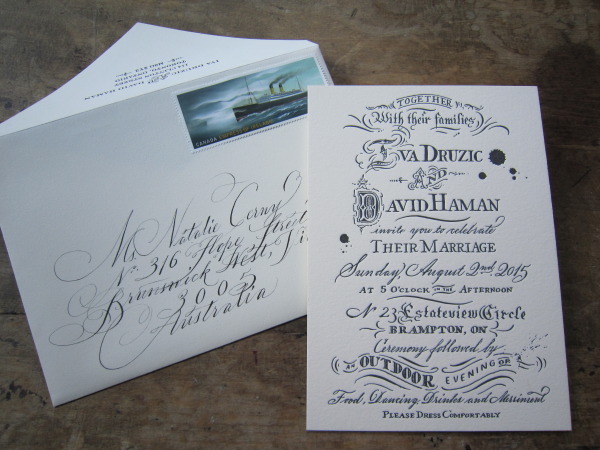 IVA DRUZIC AND DAVID HAMAN
TORONTO, ONTARIO
CANADA EMPRESS OF IRELAND
Ms Natalie Cerny
No. 316 Hope Street
Brunswick West, Vi
3005
Australia
TOGETHER
With their families
IVA DRUZIC
AND
DAVID HAMAN
invite you to celebrate
THEIR MARRIAGE
Sunday, August 2nd, 2015
AT 5 O'CLOCK IN THE AFTERNOON
No 23 Estateview Circle
BRAMPTON, ON
Ceremony followed by
AN OUTDOOR EVENING OF
Food, Dancing, Drinks and Merriment
PLEASE DRESS COMFORTABLY